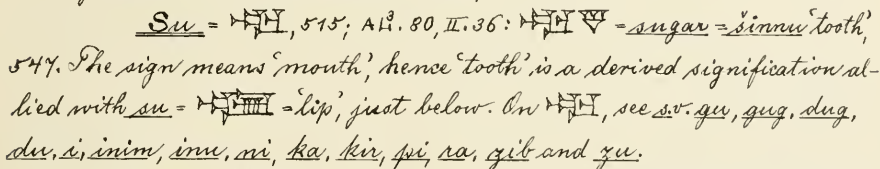 Su = 𒅗, 515; AL³. 80, II. 36: 𒅗 = sugar = šinnu 'tooth',
547. The sign means 'mouth', hence 'tooth' is a derived signification al-
lied with su = = 'lip', just below. On 𒅗, see s.v. gu, gug, dug,
du, i, inim, inu, ni, ka, kir, pi, ra, zib and zu.